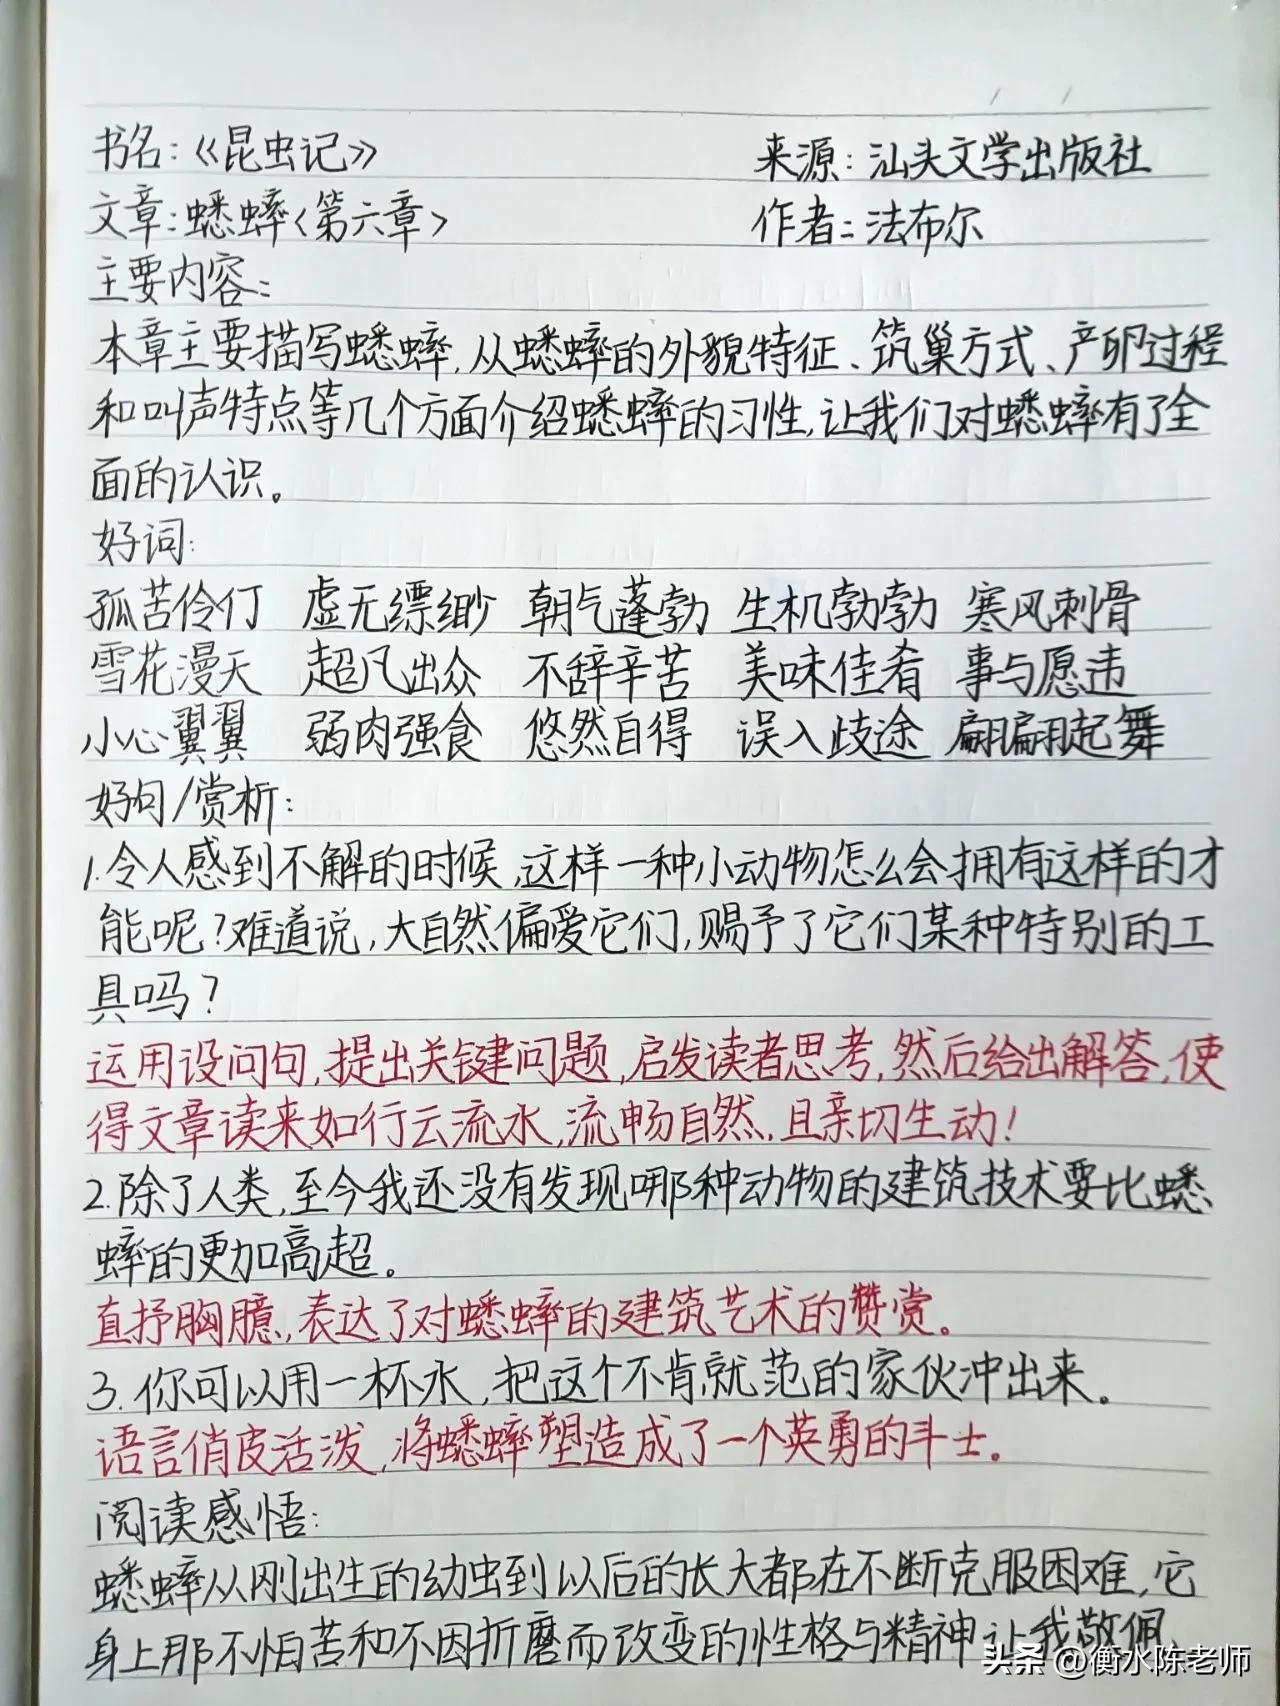 书名：《昆虫记》 来源：汕头文学出版社
文章：蟋蟀<第六章> 作者：法布尔
主要内容：
本章主要描写蟋蟀，从蟋蟀的外貌特征、筑巢方式、产卵过程
和叫声特点等几个方面介绍蟋蟀的习性，让我们对蟋蟀有了全
面的认识。
好词：
孤苦伶仃 虚无缥缈 朝气蓬勃 生机勃勃 寒风刺骨
雪花漫天 超凡出众 不辞辛苦 美味佳肴 事与愿违
小心翼翼 弱肉强食 悠然自得 误入歧途 翩翩起舞
好句/赏析：
1.令人感到不解的时候，这样一种小动物怎么会拥有这样的才
能呢？难道说，大自然偏爱它们，赐予了它们某种特别的工
具吗？
运用设问句，提出关键问题，启发读者思考，然后给出解答，使
得文章读来如行云流水，流畅自然，且亲切生动！
2.除了人类，至今我还没有发现哪种动物的建筑技术要比蟋
蟀的更加高超。
直抒胸臆，表达了对蟋蟀的建筑艺术的赞赏。
3.你可以用一杯水，把这个不肯就范的家伙冲出来。
语言俏皮活泼，将蟋蟀塑造成了一个英勇的斗士。
阅读感悟：
蟋蟀从刚出生的幼虫到以后的长大都在不断克服困难，它
身上那不怕苦和不因折磨而改变的性格与精神让我敬佩
头条 @衡水陈老师